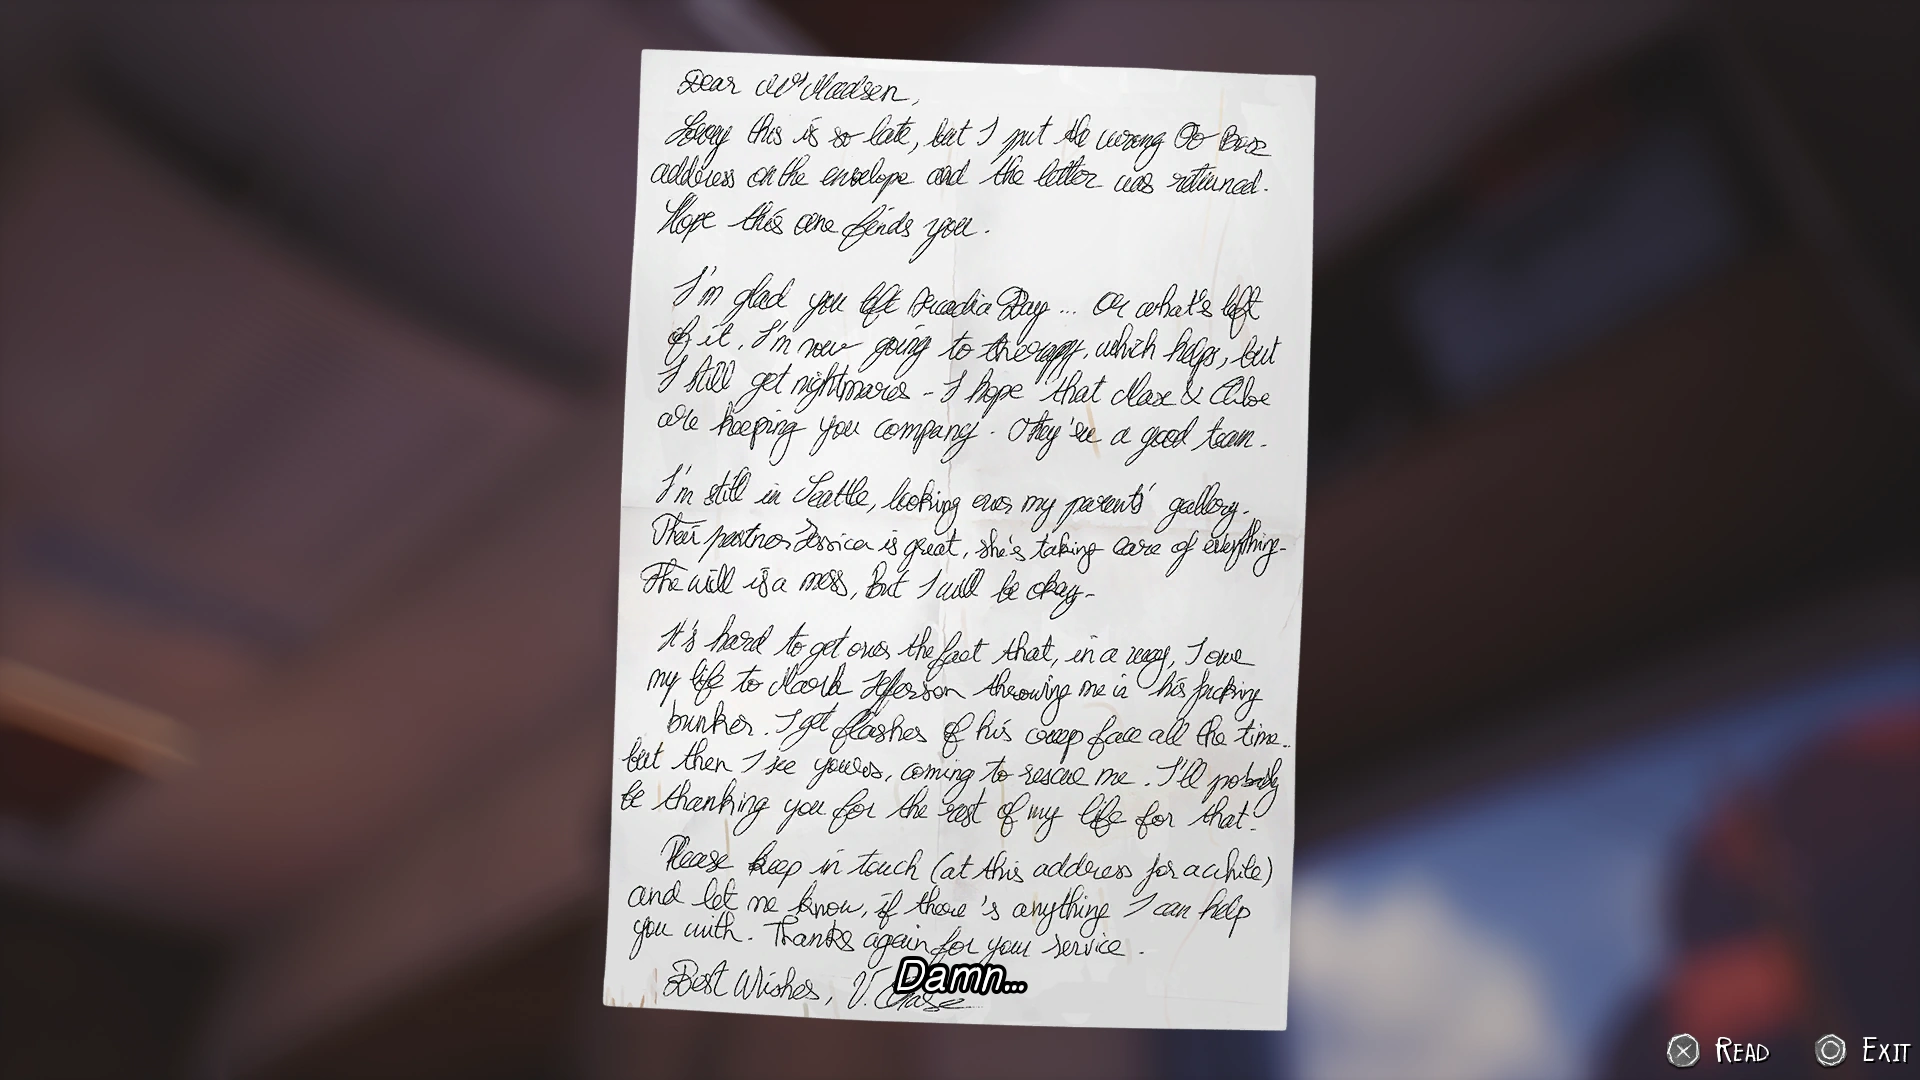 Dear Mr Madsen,
Sorry this is so late, but I put the wrong PO Box
address on the envelope and the letter was returned.
Hope this one finds you.
I'm glad you left Arcadia Bay... Or what's left
of it. I'm now going to therapy, which helps, but
I still get nightmares - I hope that Max & Chloe
are keeping you company. They're a good team.
I'm still in Seattle, looking over my parents' gallery.
Their partner Jessica is great, she's taking care of everything.
The will is a mess, but I will be okay.
It's hard to get over the fact that, in a way, I owe
my life to Mark Jefferson throwing me in his fucking
bunker. I get flashes of his creep face all the time..
but then I see yours, coming to rescue me. I'll probably
be thanking you for the rest of my life for that.
Please keep in touch (at this address for a while)
and let me know, if there's anything I can help
you with. Thanks again for your service.
Best Wishes, V. Chase
Damn...
READ EXIT